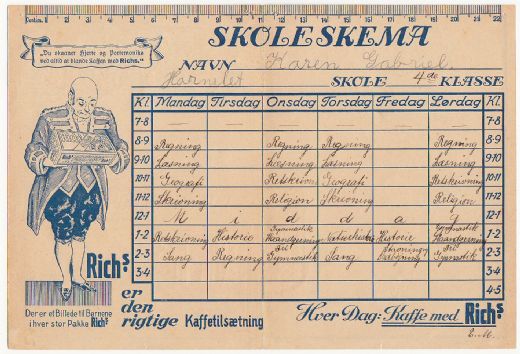 Centim. 1 2 3 4 5 6 7 8 9 10 11 12 13 14 15 16 17 18 19 20 21 22
SKOLESKEMA
"Du skaaner Hjerte og Portemonnæ
ved altid at blande Kaffen med Richs."
NAVN Karen Gabriel.
Hornelet SKOLE 4de KLASSE
Kl. Mandag Tirsdag Onsdag Torsdag Fredag Lørdag Kl.
7-8 7-8
8-9 Regning Regning Regning Regning 8-9
9-10 Læsning Læsning Læsning Læsning 9-10
10-11 Geografi Retskrivning Geografi Retskrivning 10-11
11-12 Skrivning Religion Skrivning Religion 11-12
12-1 Middag 12-1
1-2 Retskrivning Historie Gymnastik Haandgerning Naturhistorie Historie Gymnastik Haandgerning 1-2
2-3 Sang Regning Fri Gymnastik Sang Fri Gymnastik 2-3
3-4 3-4
4-5
Richs
er
den
rigtige Kaffetilsætning
Der er et Billede til Børnene
i hver stor Pakke Richs
Hver Dag: Kaffe med Richs
L.M.